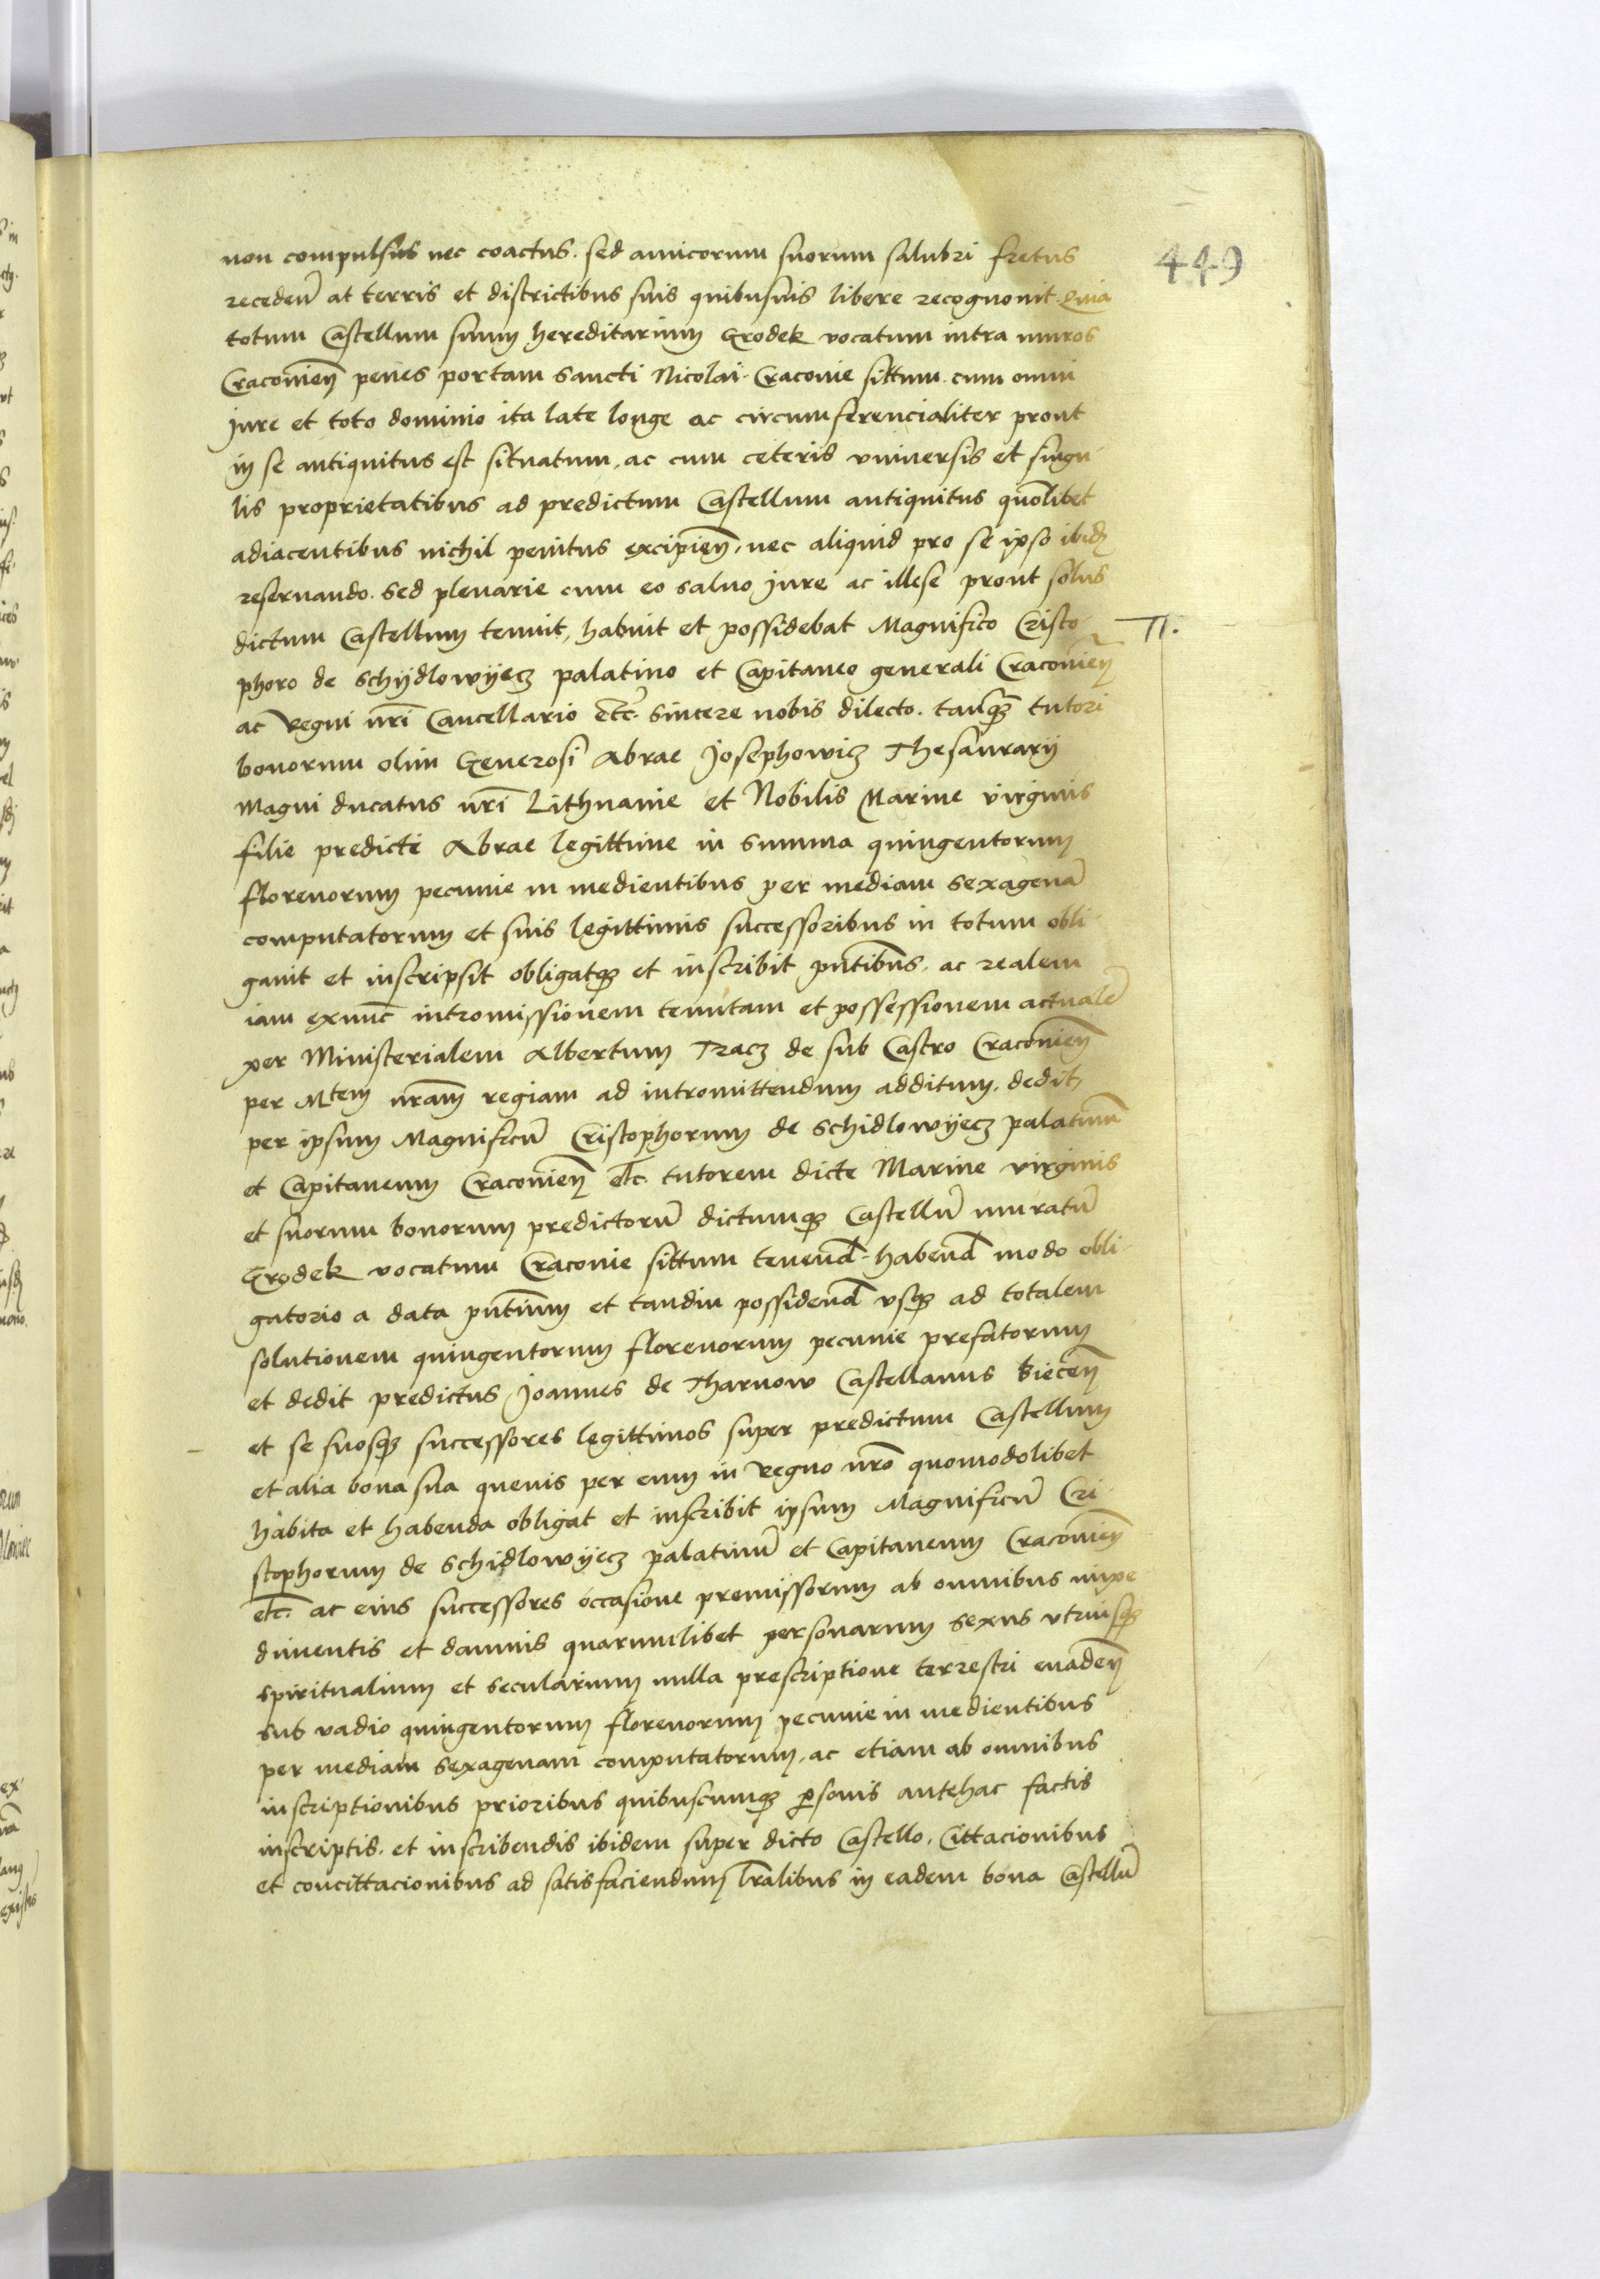 449
non compulsus nec coactus. sed amicorum suorum salubri fretus
recedeñ at terris et districtibus suis quibusuis libere recognouit. Quia
totum Castellum suum hereditarium Grodek vocatum intra muros
Cracouieñ penes portam sancti Nicolai. Cracouie sittum. cum omni
iure et toto dominio ita late longe ac circumferencialiter prout
in se antiquitus est situatum, ac cum ceteris vniuersis et singu
lis proprietatibus ad predictum Castellum antiquitus quōlibet
adiacentibus nichil penitus excipieñ, nec aliquid pro se ipso ibidē
reseruando. sed plenarie cum eo saluo iure ac illese prout solus
dictum Castellum tenuit, habuit et possidebat Magnifico Cristo
phoro de Schÿdlowÿecz palatino et Capitaneo generali Cracouieñ
ac Regni nrī Cancellario etc. sincere nobis dilecto. tanq̄z tutori
bonorum olim Generosi Abrae Josephowicz Thesaurarÿ
Magni ducatus nrī Lithuanie et Nobilis Marine virginis
filie predicti Abrae legittime in summa quingentorum
florenorum pecunie in medientibus per mediam sexagenā
computatorum et suis legittimis successoribus in totum obli
gauit et inscripsit obligatq̄z et inscribit pn̄tibus. ac realem
iam exnūc intromissionem tenutam et possessionem actualē
per Ministerialem Albertum Tracz de sub Castro Cracouieñ
per Mtem nrām regiam ad intromittendum additum. dedit
per ipsum Magnificū Cristophorum de Schidlowÿecz palatinū
et Capitaneum Cracouieñ etc. tutorem dicte Marine virginis
et suorum bonorum predictorū dictumq̄z Castellū muratū
Grodek vocatum Cracouie sittum tenend̄. habend̄ modo obli
gatorio a data pn̄tium et tandiu possidend̄ vsq̄z ad totalem
solutionem quingentorum florenorum pecunie prefatorum
et dedit predictus Joannes de Tharnow Castellanus Bieceñ
et se suosq̄z successores legittimos super predictum Castellum
et alia bona sua queuis per eum in Regno nrō quomodolibet
habita et habenda obligat et inscribit ipsum Magnificū Cri
stophorum de Schidlowÿecz palatinū et Capitaneum Cracouieñ
etc. ac eius successores occasione premissorum ab omnibus impe
dimentis et damnis quarumlibet personarum sexus vtriusq̄z
spiritualium et secularium nulla prescriptione terrestri euadeñ
sub vadio quingentorum florenorum pecunie in medientibus
per mediam sexagenam computatorum, ac etiam ab omnibus
inscriptionibus prioribus quibuscumq̄z p̱sonis antehac factis
inscriptis. et inscribendis ibidem super dicto Castello. Cittacionibus
et concittacionibus ad satisfaciendum lrālibus in eadem bona Castellū